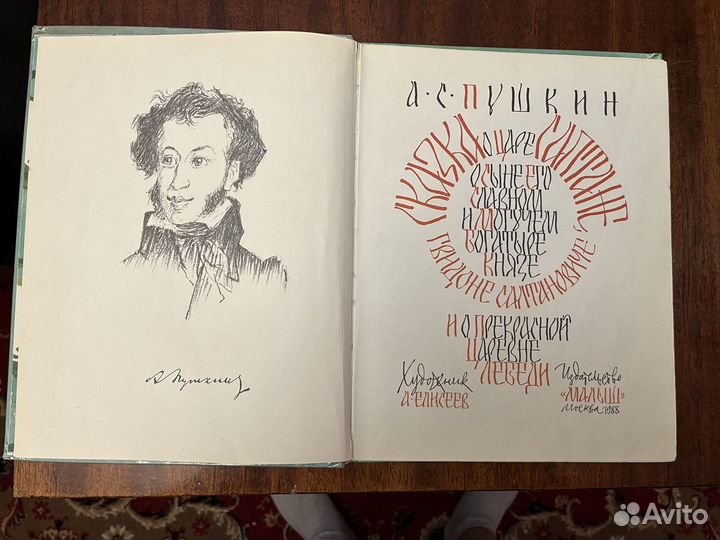 А. Пушкин
А·С·ПУШКИН
СКАЗКА О ЦАРЕ САЛТАНЕ,
О СЫНЕ ЕГО
СЛАВНОМ
И МОГУЧЕМ
БОГАТЫРЕ
КНЯЗЕ
ГВИДОНЕ САЛТАНОВИЧЕ
И О ПРЕКРАСНОЙ
ЦАРЕВНЕ
ЛЕБЕДИ
Художник
А·ЕЛИСЕЕВ
Издательство
«МАЛЫШ»
Москва·1988
Avito